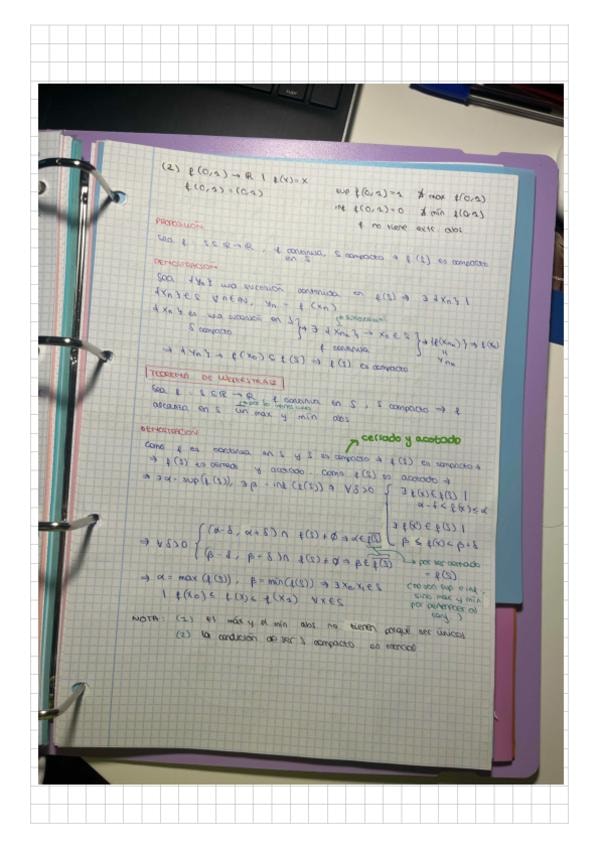 (2) f(0,1) → ℝ | f(x) = x
f(0,1) = (0,1)
sup f(0,1) = 1 ∄ max f(0,1)
inf f(0,1) = 0 ∄ min f(0,1)
f no tiene extr. abs
PROPOSICIÓN
Sea f: S ⊆ ℝ → ℝ, f continua en S, S compacto ⇒ f(S) es compacto
DEMOSTRACIÓN
Sea {Yn} una sucesión contenida en f(S) ⇒ ∃ {Xn} |
{Xn} ∈ S ∀n∈ℕ, Yn = f(Xn)
{Xn} es una sucesión en S
S compacto
} ⇒ ∃ {Xnk} → X0 ∈ S
f continua
} ⇒ {f(Xnk)} → f(X0)
Ynk
⇒ {Yn} → f(X0) ⊆ f(S) ⇒ f(S) es compacto
TEOREMA DE WEIERSTRASS
Sea f: S ⊆ ℝ → ℝ, f continua en S, S compacto ⇒ f
alcanza en S un max y min abs
DEMOSTRACIÓN
cerrado y acotado
Como f es continua en S y S es compacto ⇒ f(S) es compacto ⇒
⇒ f(S) es cerrado y acotado. Como f(S) es acotado ⇒
⇒ ∃ α = sup(f(S)), ∃ β = inf(f(S)) ⇒ ∀δ>0
{ ∃ f(x) ∈ f(S) |
α-δ < f(x) ≤ α
∃ f(x) ∈ f(S) |
β ≤ f(x) < β+δ
⇒ ∀δ>0 { (α-δ, α+δ) ∩ f(S) ≠ ∅ ⇒ α ∈ f(S)
(β-δ, β+δ) ∩ f(S) ≠ ∅ ⇒ β ∈ f(S)
→ por ser cerrado
= f(S)
(no son sup e inf,
sino max y min
por pertenecer al
conj)
⇒ α = max(f(S)), β = min(f(S)) ⇒ ∃ X0, X1 ∈ S
| f(X0) ≤ f(X) ≤ f(X1) ∀x∈S
NOTA: (1) el máx y el mín abs. no tienen porqué ser únicos
(2) la condición de ser S compacto es esencial